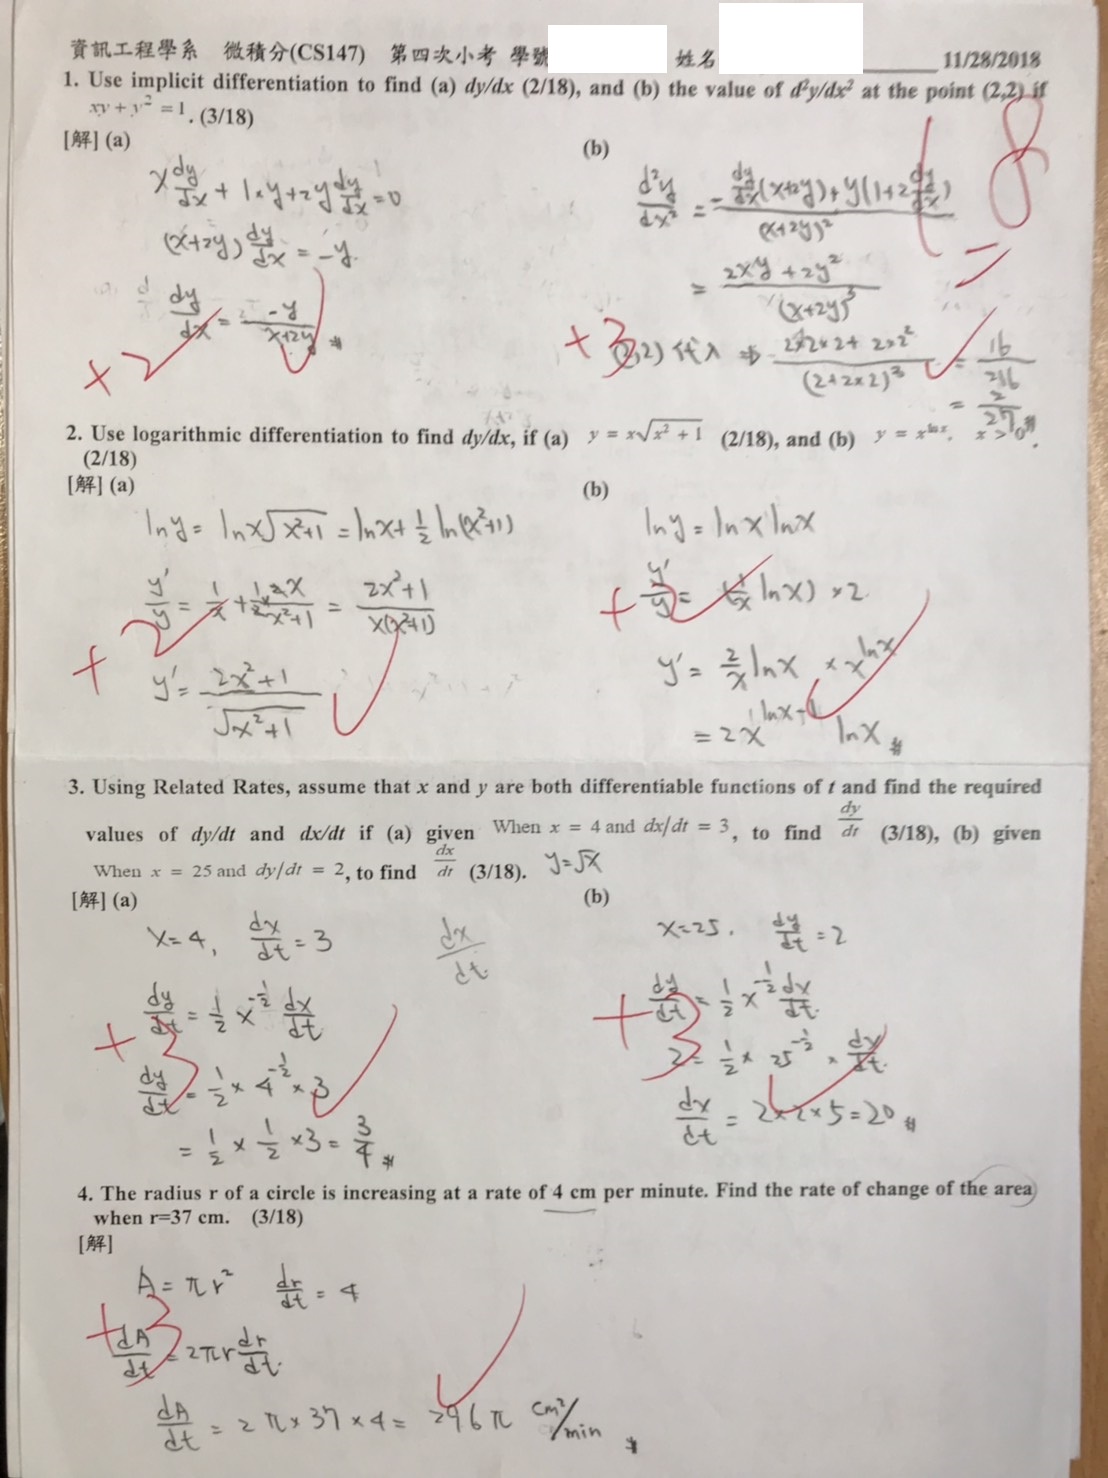 資訊工程學系 微積分(CS147) 第四次小考 學號 姓名 11/28/2018
1. Use implicit differentiation to find (a) dy/dx (2/18), and (b) the value of d²y/dx² at the point (2,2) if
xy + y² = 1 . (3/18)
18
[解] (a)
x dy/dx + 1×y + 2y dy/dx = 0
(x+2y) dy/dx = -y.
dy/dx = -y/(x+2y) #
+2
(b)
d²y/dx² = -dy/dx(x+2y) + y(1+2 dy/dx) / (x+2y)²
= 2xy + 2y² / (x+2y)³
+3
(2,2) 代入 ⇒ 2×2×2 + 2×2² / (2+2×2)³ = 16/216
= 2/27 #
2. Use logarithmic differentiation to find dy/dx, if (a) y = x√(x² + 1) (2/18), and (b) y = x^(ln x), x > 0 .
(2/18)
[解] (a)
ln y = ln x√(x²+1) = ln x + 1/2 ln(x²+1)
y'/y = 1/x + 1/2 × 2x/(x²+1) = 2x²+1 / x(x²+1)
+2
y' = 2x²+1 / √(x²+1)
(b)
ln y = ln x ln x
y'/y = (1/x ln x) × 2
+2
y' = 2/x ln x × x^(ln x)
= 2x^(ln x-1) ln x #
3. Using Related Rates, assume that x and y are both differentiable functions of t and find the required
values of dy/dt and dx/dt if (a) given When x = 4 and dx/dt = 3 , to find dy/dt (3/18), (b) given
When x = 25 and dy/dt = 2 , to find dx/dt (3/18). y=√x
[解] (a)
x=4, dx/dt = 3
dx/dt
dy/dt = 1/2 x^(-1/2) dx/dt
+3
dy/dt = 1/2 × 4^(-1/2) × 3
= 1/2 × 1/2 × 3 = 3/4 #
(b)
x=25. dy/dt = 2
dy/dt = 1/2 x^(-1/2) dx/dt.
+3
2 = 1/2 × 25^(-1/2) × dx/dt.
dx/dt = 2×2×5 = 20 #
4. The radius r of a circle is increasing at a rate of 4 cm per minute. Find the rate of change of the area
when r=37 cm. (3/18)
[解]
A = πr² dr/dt = 4
+3
dA/dt = 2πr dr/dt.
dA/dt = 2π × 37 × 4 = 296π cm²/min #